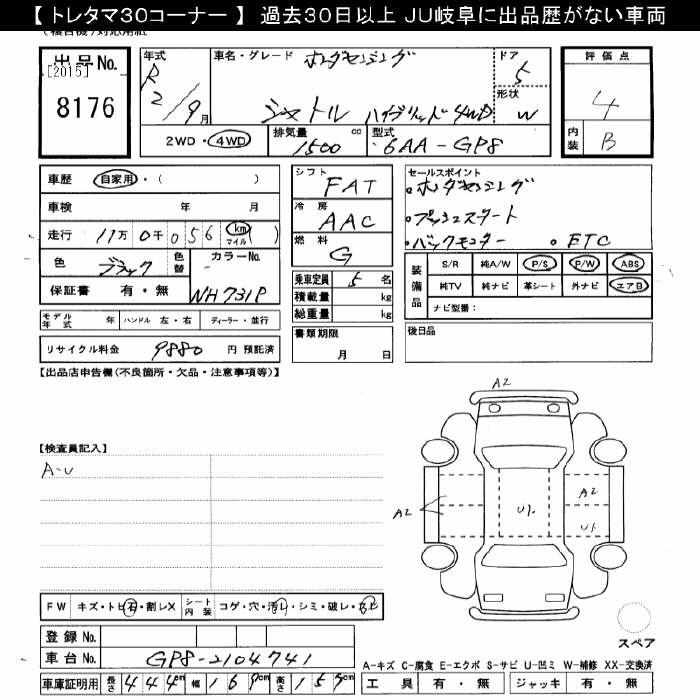 【 トレタマ30コーナー 】 過去30日以上 JU岐阜に出品歴がない車両
出品No.
[2015]
8176
年式
R
2/9月
車名・グレード ホンダセンシング
シャトル ハイブリッド4WD
ドア
5
形状
W
評価点
4
内装 B
2WD・4WD
排気量 1500 cc
型式 6AA-GP8
車歴 自家用・( )
車検 年 月
走行 11万 0千 056 (km マイル)
色 ブラック 色替
カラーNo.
NH731P
保証書 有・無
モデル年式 年 ハンドル 左・右 ディーラー・並行
リサイクル料金 9880 円 預託済
シフト
FAT
冷房
AAC
燃料
G
乗車定員 5 名
積載量 kg
総重量 kg
書類期限
月 日
セールスポイント
・ホンダセンシング
・プッシュスタート
・バックモニター ・ETC
装備品
S/R 純A/W P/S P/W ABS
純TV 純ナビ 革シート 外ナビ エアB
ナビ型番:
後日品
【出品店申告欄(不良箇所・欠品・注意事項等)】
【検査員記入】
A-U
A2
A2
A2
U1.
U1.
FW キズ・トビ石・割レX シート内装 コゲ・穴・汚レ・シミ・破レ・
登録No.
車台No. GP8-2104741
車庫証明用 長さ 444cm 幅 169cm 高さ 157cm
スペア
A-キズ C-腐食 E-エクボ S-サビ U-凹ミ W-補修 XX-交換済
工具 有・無 ジャッキ 有・無